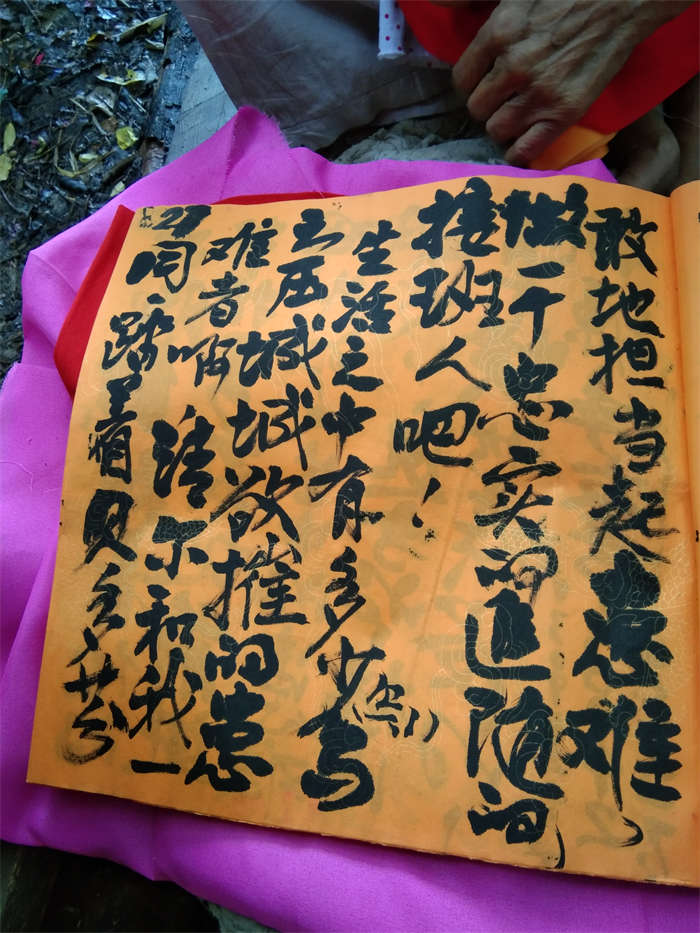 敢地担当起患难
做一个忠实的追随的
接班人吧！
生活之中有多少乌
云压城城欲摧的患
难者啊请尔和我一
同踏着贝多芬